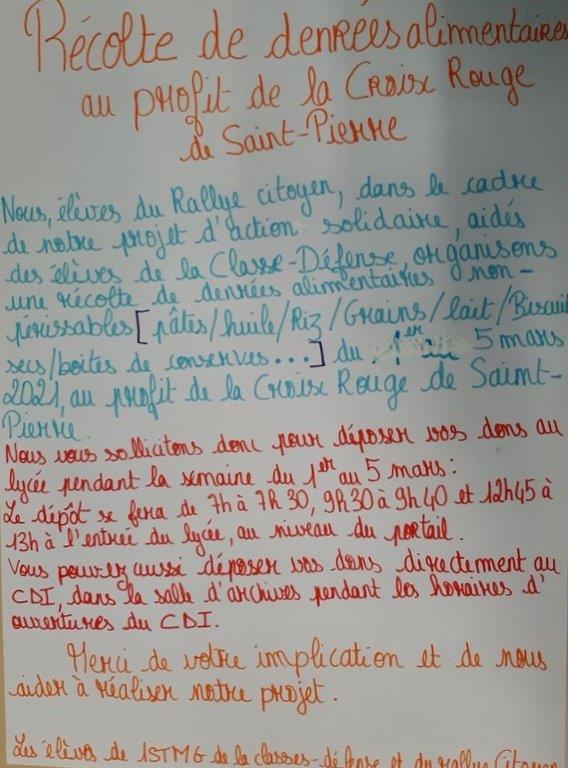 Récolte de denrées alimentaires
au profit de la Croix Rouge
de Saint-Pierre
Nous, élèves du Rallye citoyen, dans le cadre
de notre projet d'action solidaire, aidés
des élèves de la Classe-Défense, organisons
une récolte de denrées alimentaires non-
périssables [pâtes/huile/Riz/Grains/lait/Biscuit
secs/boites de conserves...] du 1er au 5 mars
2021, au profit de la Croix Rouge de Saint-
Pierre.
Nous vous sollicitons donc pour déposer vos dons au
lycée pendant la semaine du 1er au 5 mars :
Le dépôt se fera de 7h à 7h30, 9h30 à 9h40 et 12h45 à
13h à l'entrée du lycée, au niveau du portail.
Vous pouvez aussi déposer vos dons directement au
CDI, dans la salle d'archives pendant les horaires d'
ouvertures du CDI.
Merci de votre implication et de nous
aider à réaliser notre projet.
Les élèves de 1STMG de la classes-défense et du rallye Citoyen